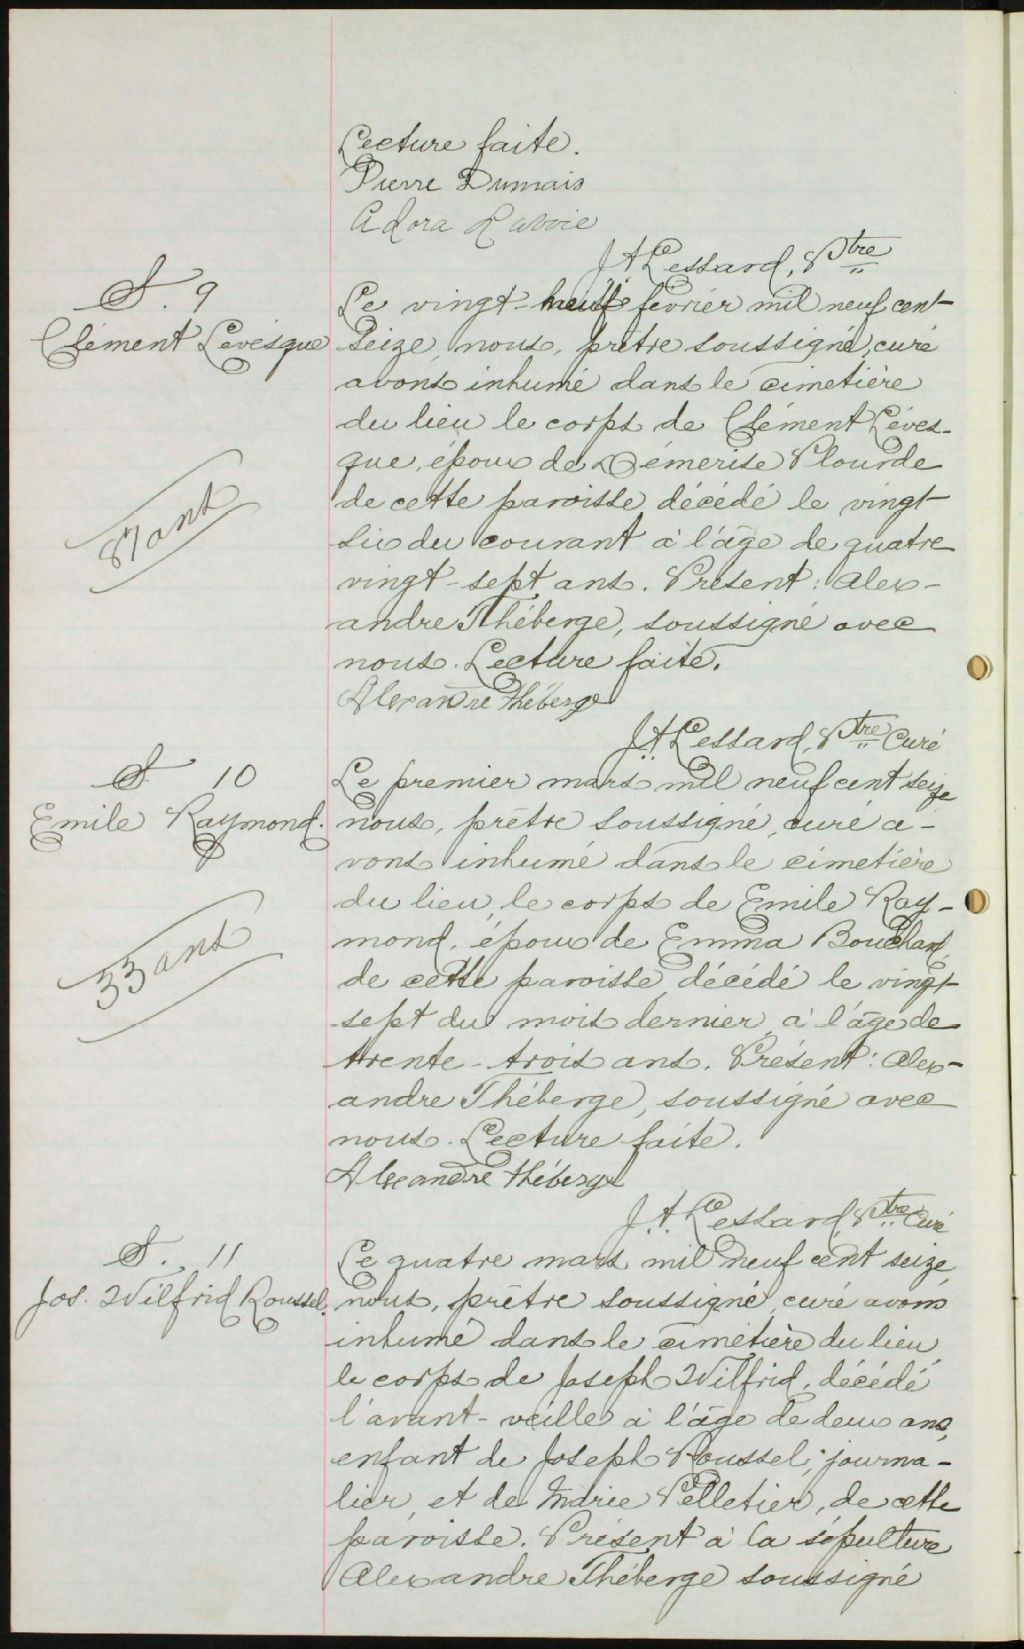 Lecture faite.
Pierre Dumais
Adora Lavoie
J A Lessard, Ptre
S. 9
Clément Lévesque
87 ans
Le vingt-neuf février mil neuf cent
seize, nous, prêtre soussigné, curé
avons inhumé dans le cimetière
du lieu le corps de Clément Léves-
que, époux de Démerise Plourde
de cette paroisse décédé le vingt
six du courant à l'âge de quatre
vingt-sept ans. Présent: Alex-
andre Théberge, soussigné avec
nous. Lecture faite.
Alexandre Théberge
J. A. Lessard, Ptre Curé
S 10
Emile Raymond.
33 ans
Le premier mars mil neuf cent seize
nous, prêtre soussigné, curé a-
vons inhumé dans le cimetière
du lieu, le corps de Emile Ray-
mond, époux de Emma Bouchard,
de cette paroisse, décédé le vingt
sept du mois dernier, à l'âge de
trente-trois ans. Présent: Alex-
andre Théberge, soussigné avec
nous. Lecture faite.
Alexandre Théberge
J. A. Lessard Ptre Curé
S. 11
Jos. Wilfrid Roussel.
Le quatre mars mil neuf cent seize,
nous, prêtre soussigné, curé avons
inhumé dans le cimetière du lieu,
le corps de Joseph Wilfrid, décédé
l'avant-veille à l'âge de deux ans,
enfant de Joseph Roussel, journa-
lier, et de Marie Pelletier, de cette
paroisse. Présent à la sépulture
Alexandre Théberge soussigné